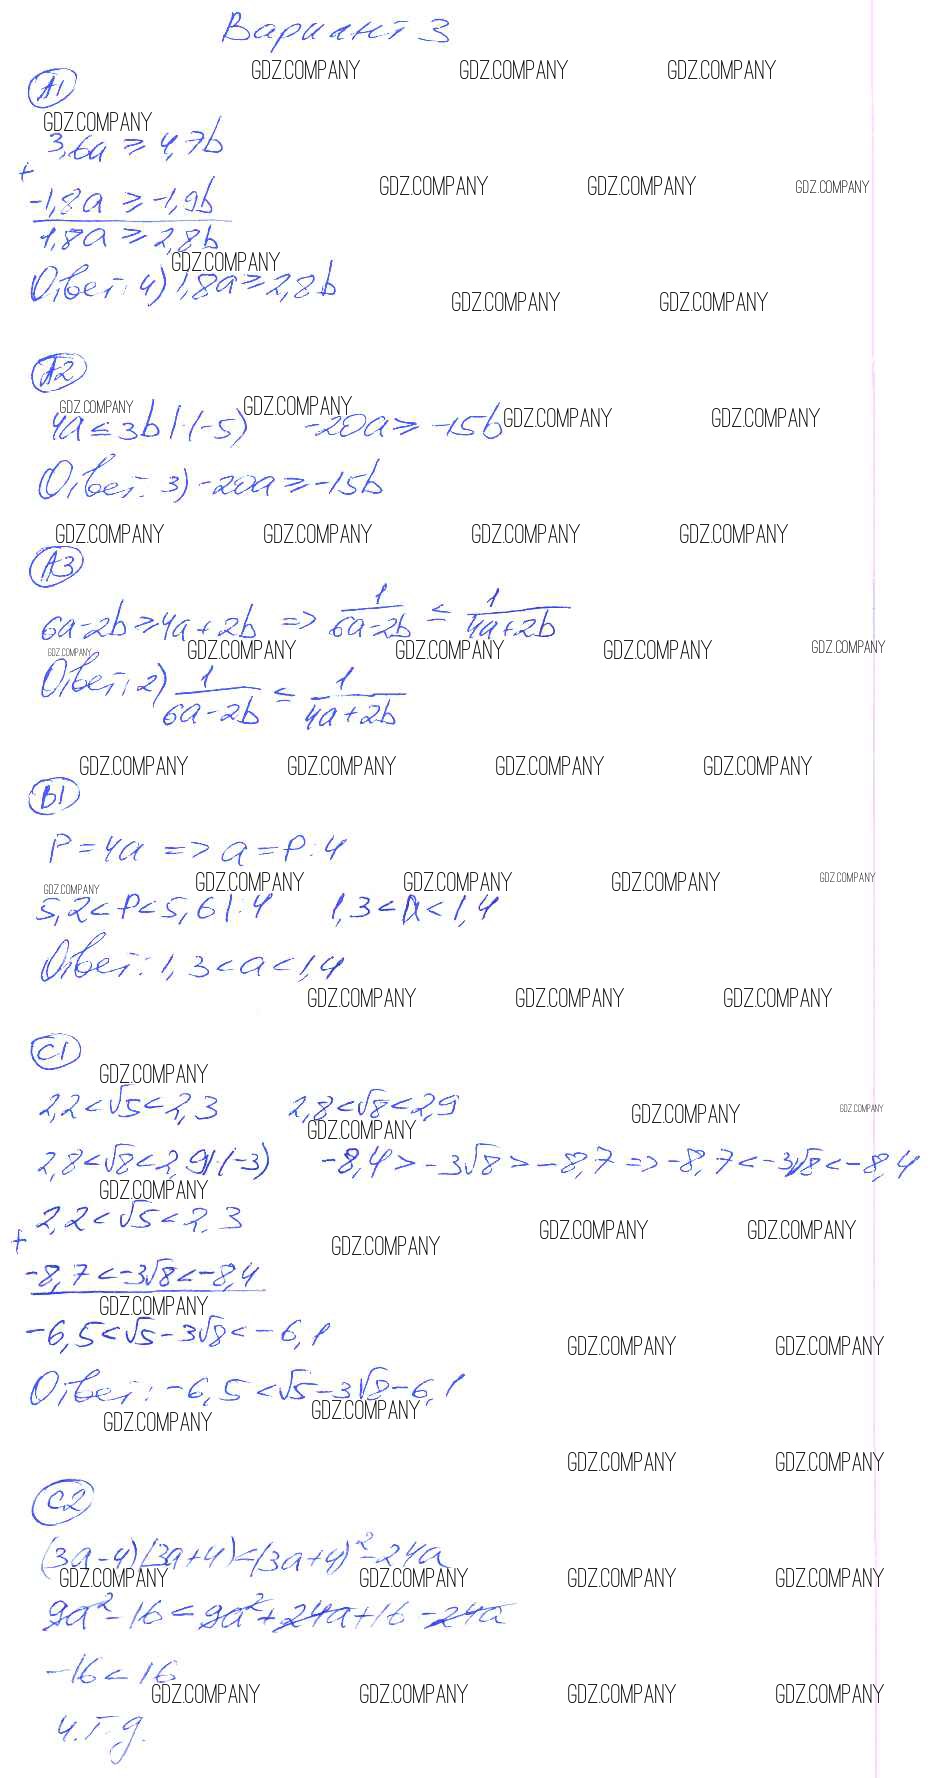 Вариант 3
GDZ.COMPANY GDZ.COMPANY GDZ.COMPANY
А1
GDZ.COMPANY
3,6a ≥ 4,7b
+
GDZ.COMPANY GDZ.COMPANY GDZ.COMPANY
-1,8a ≥ -1,9b
1,8a ≥ 2,8b
GDZ.COMPANY
Ответ: 4) 1,8a ≥ 2,8b
GDZ.COMPANY GDZ.COMPANY
А2
GDZ.COMPANY GDZ.COMPANY GDZ.COMPANY GDZ.COMPANY
4a ≤ 3b |·(-5) -20a ≥ -15b
Ответ: 3) -20a ≥ -15b
GDZ.COMPANY GDZ.COMPANY GDZ.COMPANY GDZ.COMPANY
А3
6a-2b ≥ 4a+2b => 1/(6a-2b) ≤ 1/(4a+2b)
GDZ.COMPANY GDZ.COMPANY GDZ.COMPANY GDZ.COMPANY GDZ.COMPANY
Ответ: 2) 1/(6a-2b) ≤ 1/(4a+2b)
GDZ.COMPANY GDZ.COMPANY GDZ.COMPANY GDZ.COMPANY
В1
P = 4a => a = P:4
GDZ.COMPANY GDZ.COMPANY GDZ.COMPANY GDZ.COMPANY GDZ.COMPANY
5,2 < P < 5,6 |:4 1,3 < a < 1,4
Ответ: 1,3 < a < 1,4
GDZ.COMPANY GDZ.COMPANY GDZ.COMPANY
С1
GDZ.COMPANY
2,2 < √5 < 2,3 2,8 < √8 < 2,9
GDZ.COMPANY GDZ.COMPANY
GDZ.COMPANY
2,8 < √8 < 2,9 |·(-3) -8,4 > -3√8 > -8,7 => -8,7 < -3√8 < -8,4
GDZ.COMPANY
2,2 < √5 < 2,3
+
GDZ.COMPANY GDZ.COMPANY
GDZ.COMPANY
-8,7 < -3√8 < -8,4
GDZ.COMPANY
-6,5 < √5 - 3√8 < -6,1
GDZ.COMPANY GDZ.COMPANY
Ответ: -6,5 < √5 - 3√8 - 6,1
GDZ.COMPANY GDZ.COMPANY
GDZ.COMPANY GDZ.COMPANY
С2
(3a-4)(3a+4) < (3a+4)² - 24a
GDZ.COMPANY GDZ.COMPANY GDZ.COMPANY GDZ.COMPANY
9a² - 16 < 9a² + 24a + 16 - 24a
-16 < 16
GDZ.COMPANY GDZ.COMPANY GDZ.COMPANY GDZ.COMPANY
ч.т.д.